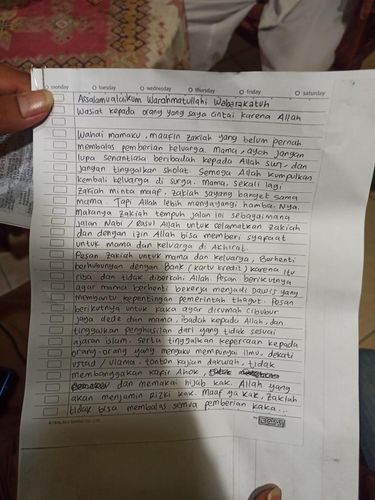 monday tuesday wednesday thursday friday saturday
Assalamualaikum Warahmatullahi Wabarakatuh
Wasiat kepada orang yang saya cintai karena Allah
Wahai mamaku, maafin zakiah yang belum pernah
membalas pemberian keluarga. mama, ayah jangan
lupa senantiasa beribadah kepada Allah swt. dan
jangan tinggalkan sholat. Semoga Allah kumpulkan
kembali keluarga di surga. mama, sekali lagi
zakiah minta maaf, zakiah sayang banget sama
mama. Tapi Allah lebih menyayangi hamba-Nya.
makanya zakiah tempuh jalan ini sebagaimana
jalan Nabi / Rasul Allah untuk selamatkan zakiah
dan dengan izin Allah bisa memberi syafaat
untuk mama dan keluarga di Akhirat.
Pesan zakiah untuk mama dan keluarga, Berhenti
berhubungan dengan Bank (kartu kredit) karena itu
riba dan tidak diberkahi Allah. Pesan berikutnya
agar mama berhenti bekerja menjadi Dawis yang
membantu kepentingan pemerintah thagut. Pesan
berikutnya untuk kaka agar dirumah cibubur
jaga dede dan mama, ibadah kepada Allah, dan
tinggalkan penghasilan dari yang tidak sesuai
ajaran islam. serta tinggalkan kepercaan kepada
orang-orang yang mengaku mempunyai ilmu, dekati
ustad / ulama. tonton kajian dakwah, tidak
membanggakan kafir Ahok,
dan memakai hijab kak. Allah yang
akan menjamin Rizki kak. maaf ya kak, zakiah
tidak bisa membalas semua pemberian kaka...